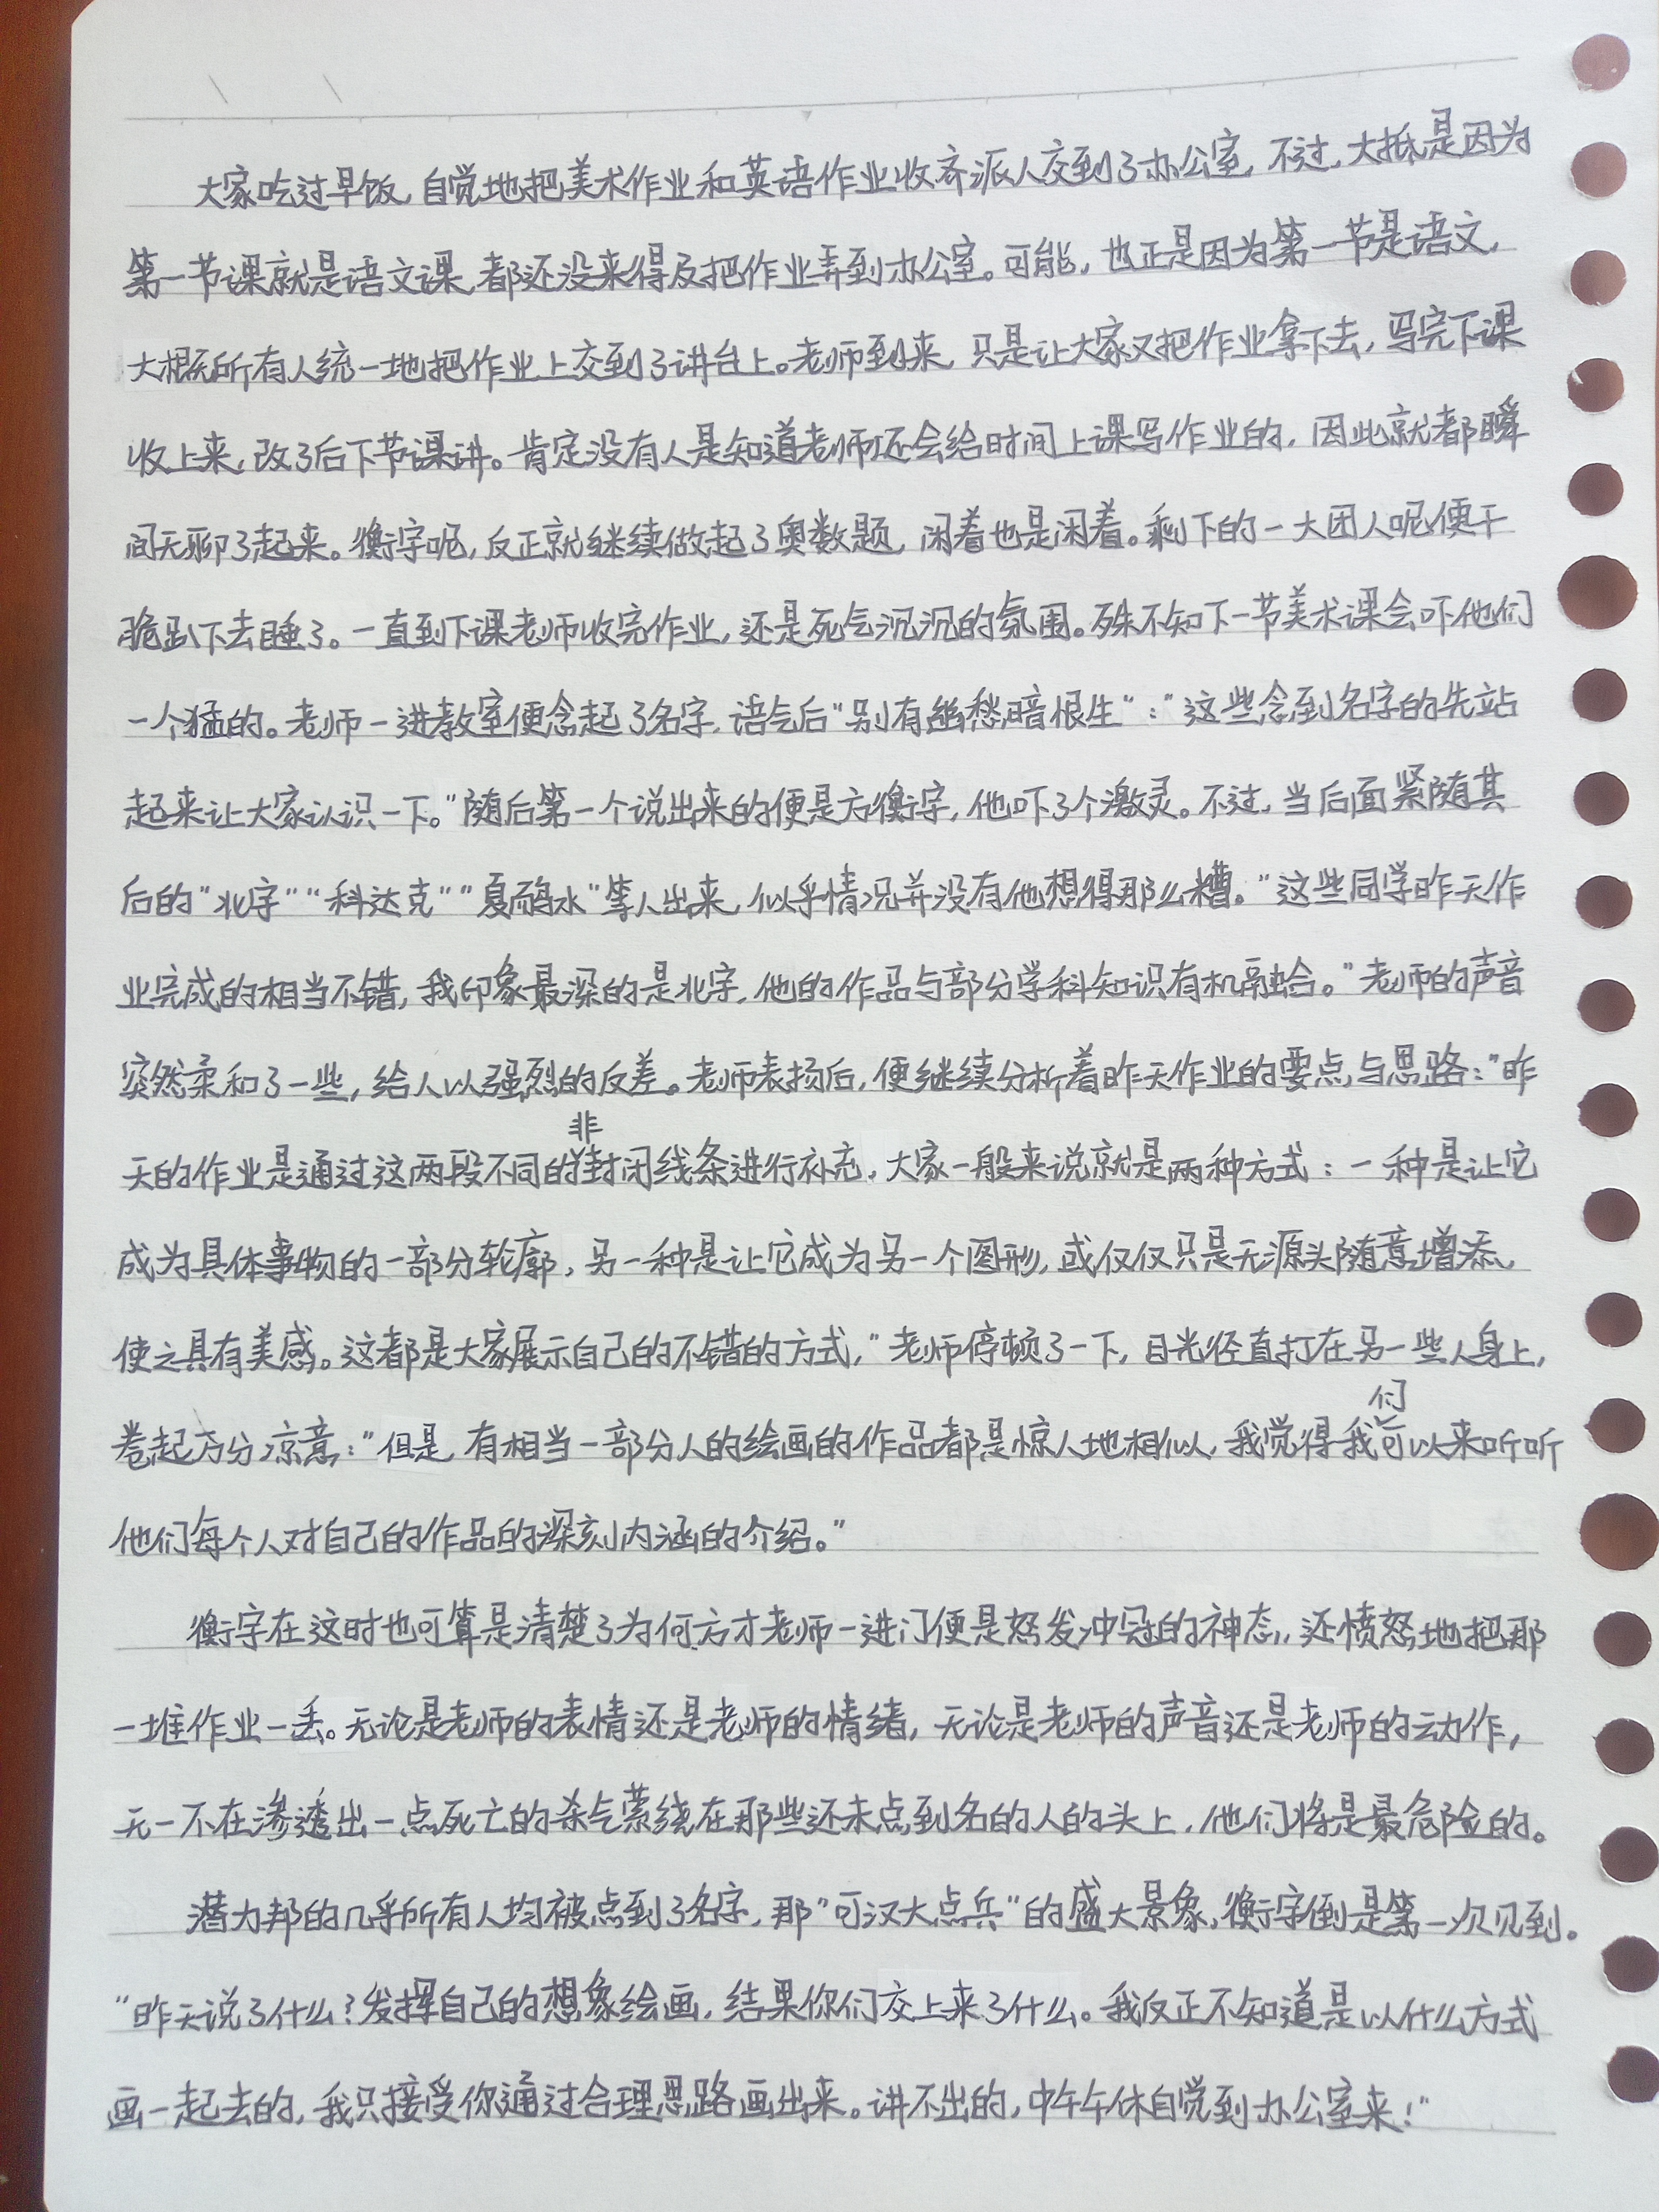 大家吃过早饭,自觉地把美术作业和英语作业收齐派人交到了办公室,不过,大抵是因为
第一节课就是语文课,都还没来得及把作业弄到办公室。可能,也正是因为第一节是语文,
大概所有人统一地把作业上交到了讲台上。老师到来,只是让大家又把作业拿下去,写完下课
收上来,改了后下节课讲。肯定没有人是知道老师还会给时间上课写作业的,因此就都瞬
间无聊了起来。衡宇呢,反正就继续做起了奥数题,闲着也是闲着。剩下的一大团人呢,便干
脆趴下去睡了。一直到下课老师收完作业,还是死气沉沉的氛围。殊不知下一节美术课会吓他们
一个猛的。老师一进教室便念起了名字,语气后“别有幽愁暗恨生”:“这些念到名字的先站
起来让大家认识一下。”随后第一个说出来的便是方衡宇,他吓了个激灵。不过,当后面紧随其
后的“北宇”“科达克”“夏硝水”等人出来,似乎情况并没有他想得那么糟。“这些同学昨天作
业完成的相当不错,我印象最深的是北宇,他的作品与部分学科知识有机融合。”老师的声音
突然柔和了一些,给人以强烈的反差。老师表扬后,便继续分析着昨天作业的要点与思路:“昨
天的作业是通过这两段不同的非封闭线条进行补充,大家一般来说就是两种方式:一种是让它
成为具体事物的一部分轮廓,另一种是让它成为另一个图形,或仅仅只是无源头随意增添,
使之具有美感。这都是大家展示自己的不错的方式,”老师停顿了一下,目光径直打在另一些人身上,
卷起万分凉意:“但是,有相当一部分人的绘画的作品都是惊人地相似,我觉得我们可以来听听
他们每个人对自己的作品的深刻内涵的介绍。”
衡宇在这时也可算是清楚了为何方才老师一进门便是怒发冲冠的神态,还愤怒地把那
一堆作业一丢。无论是老师的表情还是老师的情绪,无论是老师的声音还是老师的动作,
无一不在渗透出一点死亡的杀气萦绕在那些还未点到名的人的头上,他们将是最危险的。
潜力邦的几乎所有人均被点到了名字,那“可汉大点兵”的盛大景象,衡宇倒是第一次见到。
“昨天说了什么?发挥自己的想象绘画,结果你们交上来了什么。我反正不知道是以什么方式
画一起去的,我只接受你通过合理思路画出来。讲不出的,中午午休自觉到办公室来!”